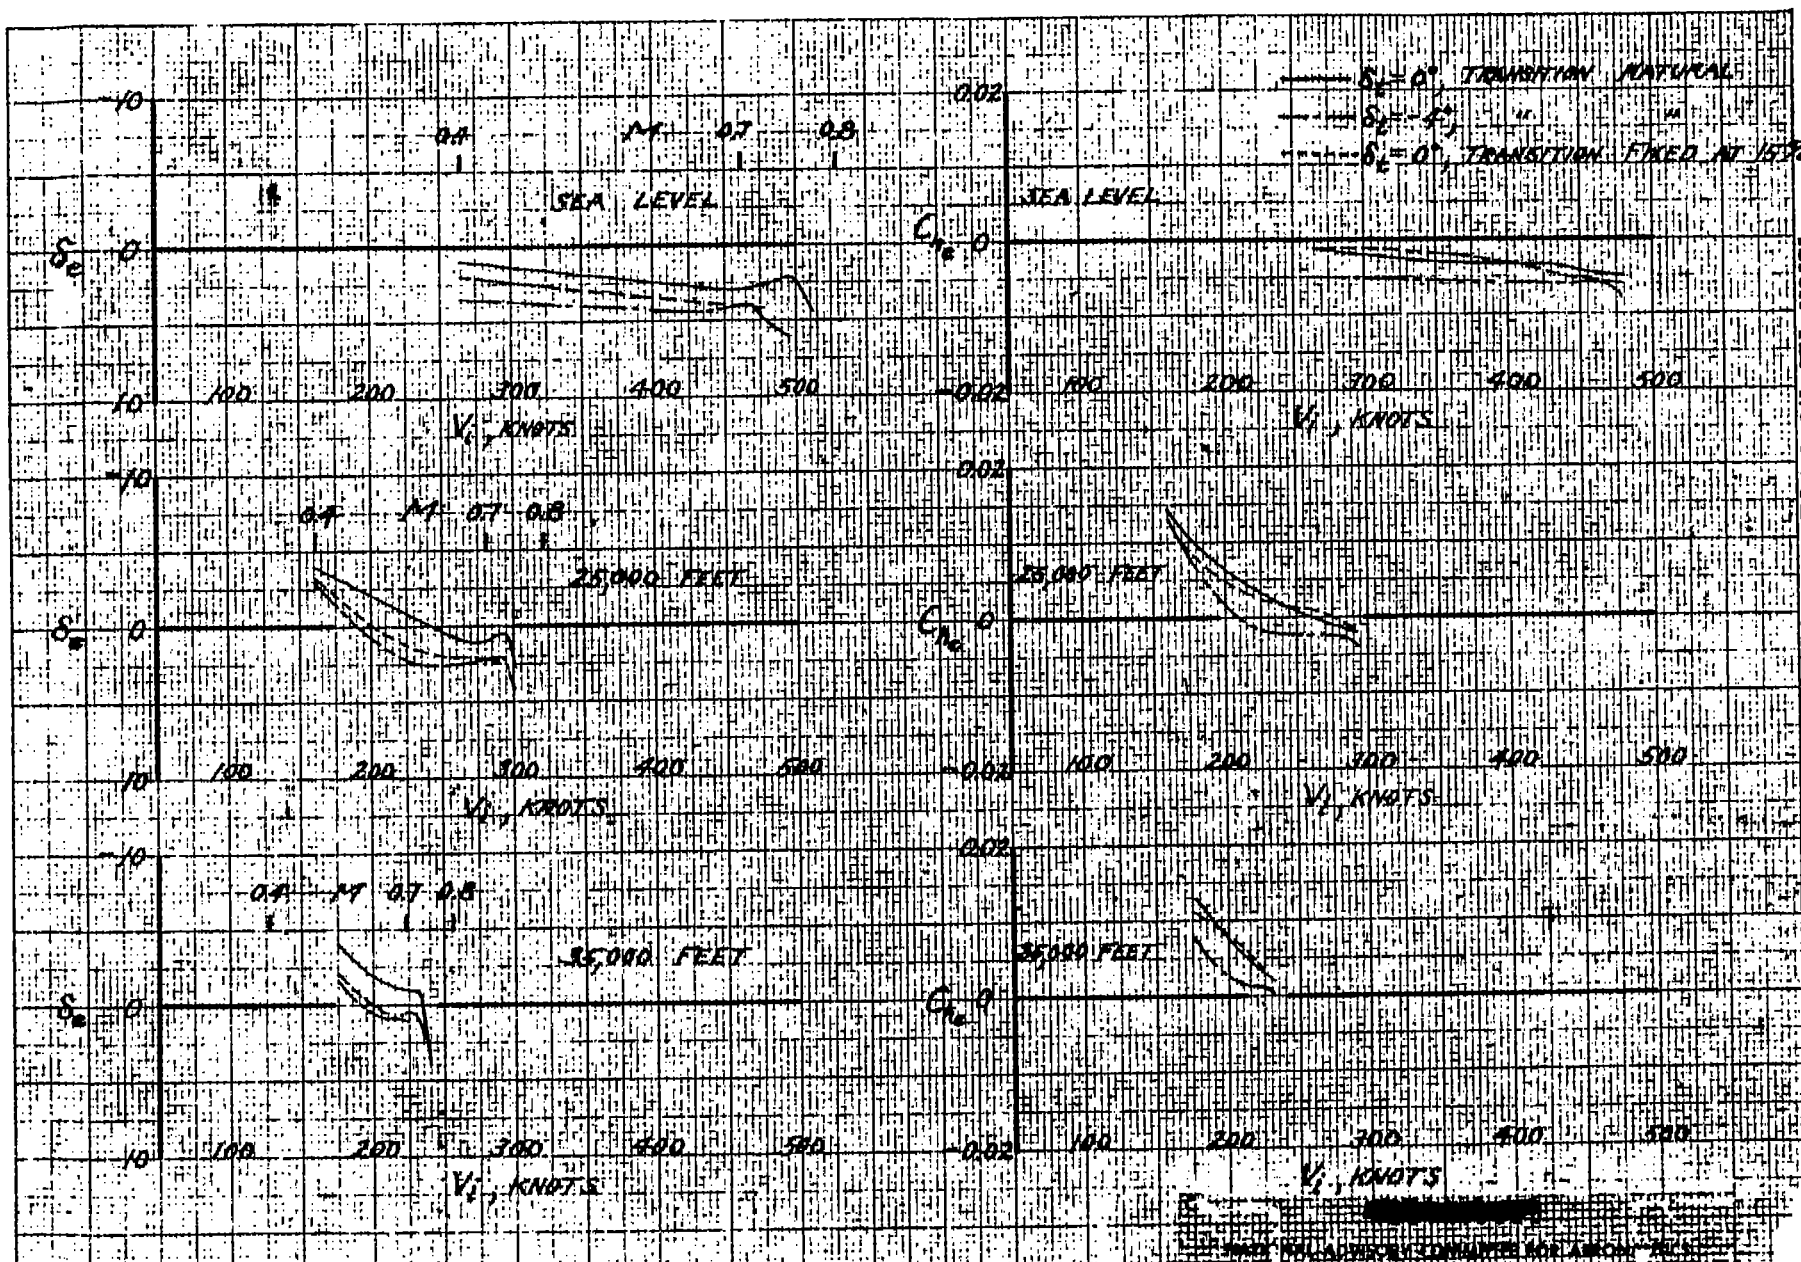 δt = 0°, TRANSITION NATURAL
δt = -4°, " "
δt = 0°, TRANSITION FIXED AT 15%
-10
0.4 M 0.7 0.8
SEA LEVEL
δe 0
10
100 200 300 400 500
Vi, KNOTS
0.02
SEA LEVEL
Che 0
-0.02
100 200 300 400 500
Vi, KNOTS
-10
0.4 M 0.7 0.8
25,000 FEET
δe 0
10
100 200 300 400 500
Vi, KNOTS
0.02
25,000 FEET
Che 0
-0.02
100 200 300 400 500
Vi, KNOTS
-10
0.4 M 0.7 0.8
35,000 FEET
δe 0
10
100 200 300 400 500
Vi, KNOTS
0.02
35,000 FEET
Che 0
-0.02
100 200 300 400 500
Vi, KNOTS
NATIONAL ADVISORY COMMITTEE FOR AERONAUTICS